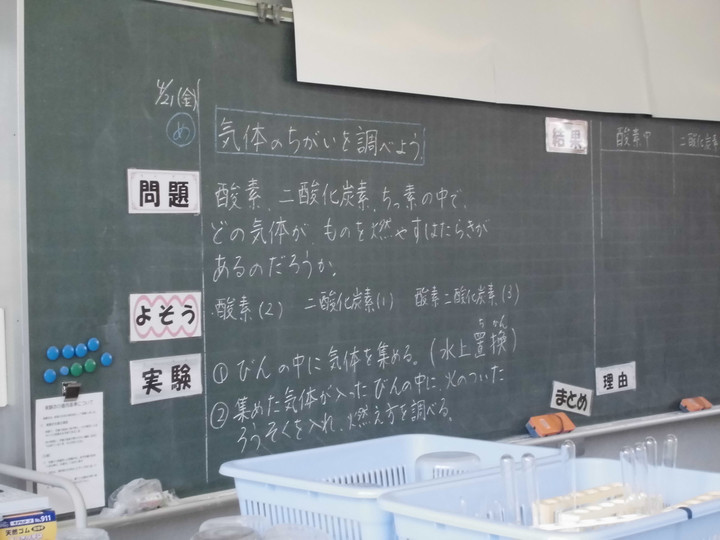 4/21(金)
め
気体のちがいを調べよう
問題
酸素、二酸化炭素、ちっ素の中で、
どの気体が、ものを燃やすはたらきが
あるのだろうか。
よそう
酸素(2) 二酸化炭素(1) 酸素二酸化炭素(3)
実験
①びんの中に気体を集める。(水上置換)
ちかん
②集めた気体が入ったびんの中に、火のついた
ろうそくを入れ、燃え方を調べる。
結果
酸素
二酸化炭素
理由
まとめ
No.911
天然ゴム